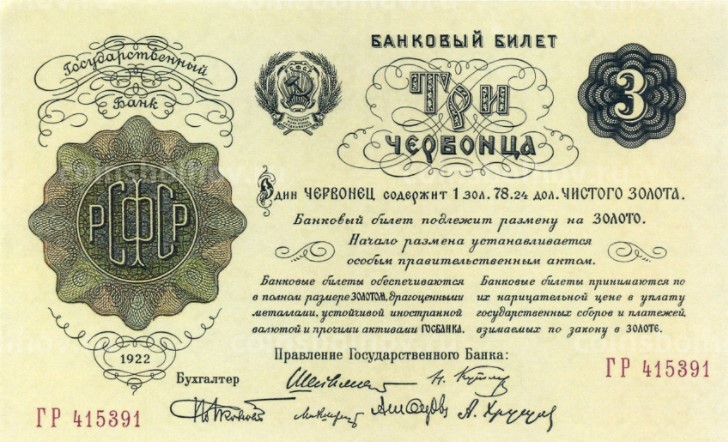 Государственный
Банк
РСФСР
1922
БАНКОВЫЙ БИЛЕТ
ТРИ
ЧЕРВОНЦА
3
Один ЧЕРВОНЕЦ содержит 1 зол. 78.24 дол. ЧИСТОГО ЗОЛОТА.
Банковый билет подлежит размену на ЗОЛОТО.
Начало размена устанавливается
особым правительственным актом.
Банковые билеты обеспечиваются
в полном размере ЗОЛОТОМ, драгоценными
металлами, устойчивой иностранной
валютой и прочими активами ГОСБАНКА.
Банковые билеты принимаются по
их нарицательной цене в уплату
государственных сборов и платежей,
взимаемых по закону в ЗОЛОТЕ.
Правление Государственного Банка:
Бухгалтер
ГР 415391
ГР 415391